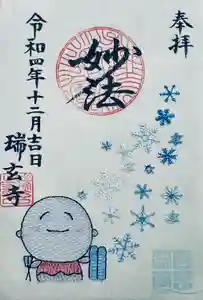 奉拝
妙法
令和四年十二月吉日
瑞玄寺